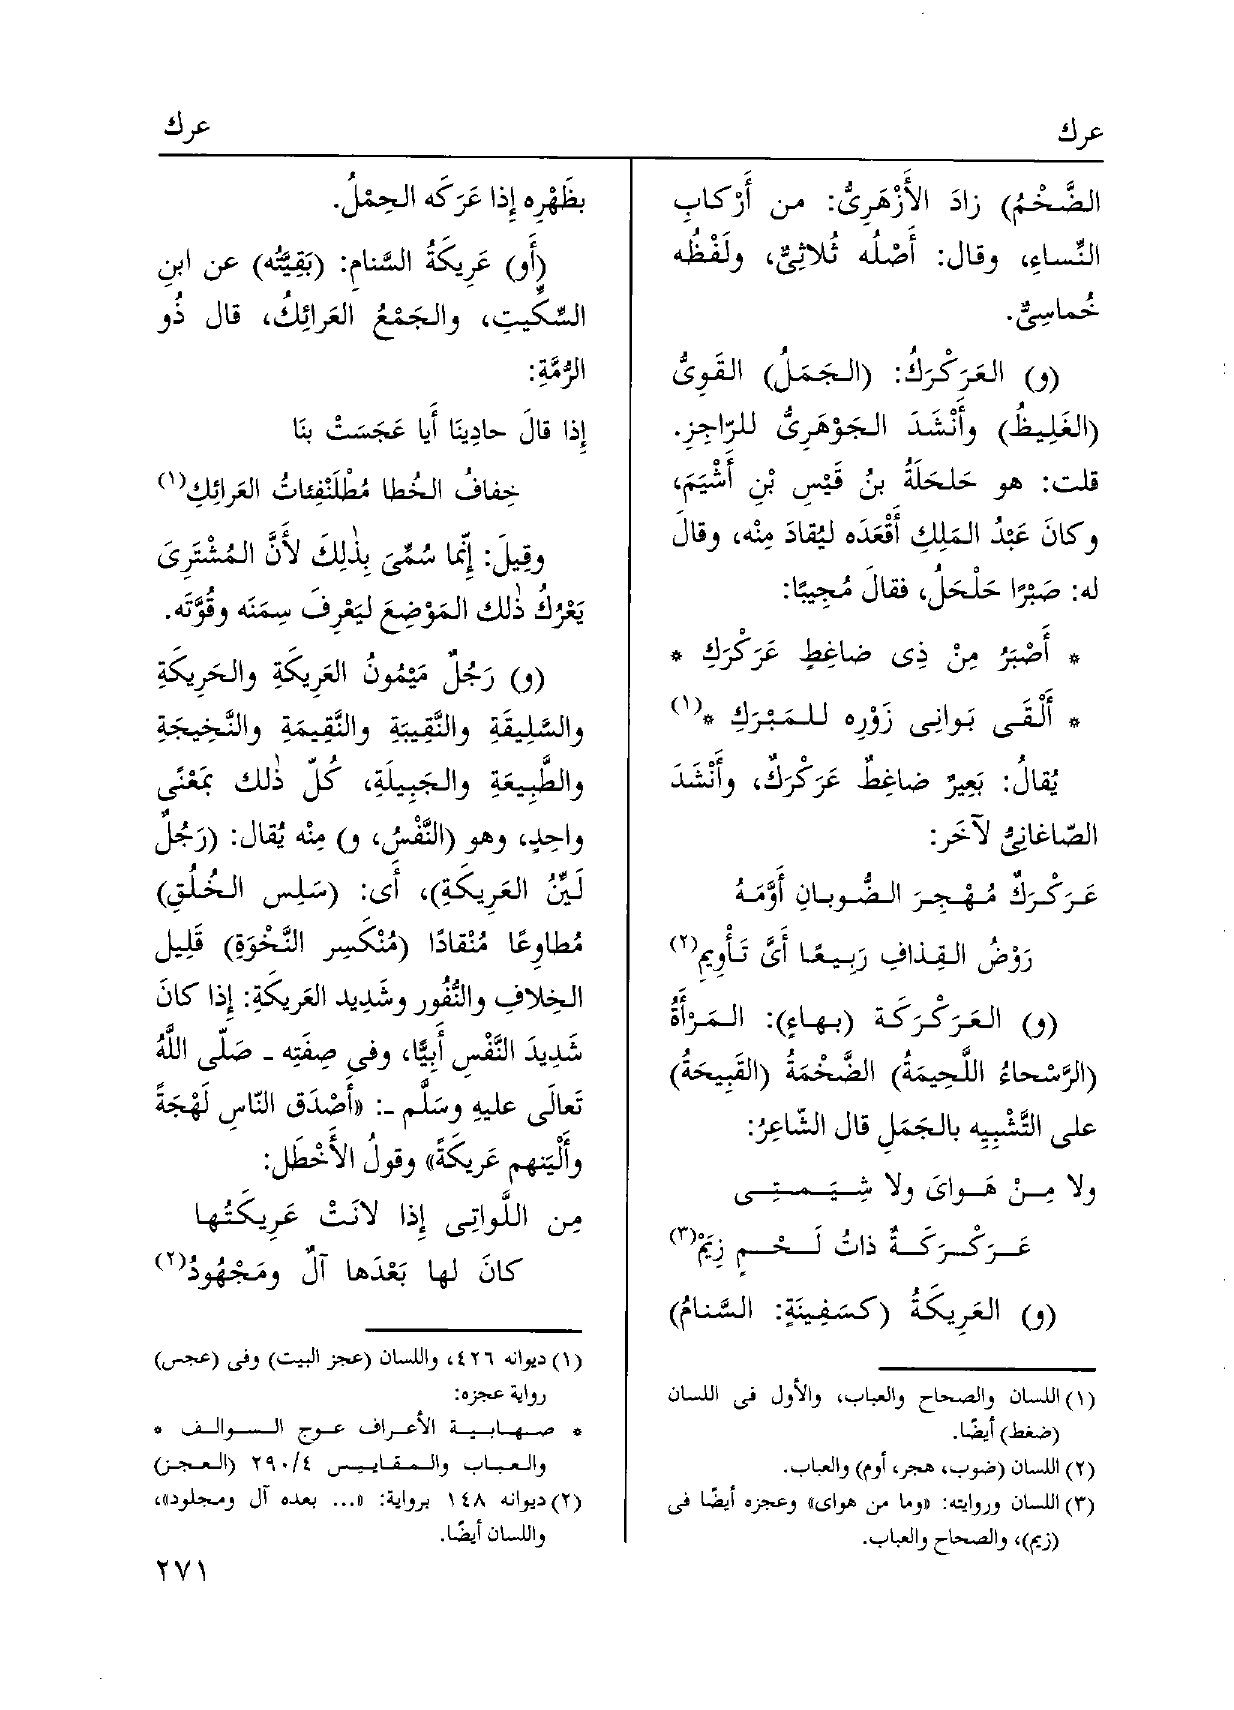 عرك
عرك
الضَّخْمُ) زادَ الأَزْهَرِىُّ: من أَرْكابِ
النِّساءِ، وقال: أَصْلُه ثُلاثِىٌّ، ولَفْظُه
خُماسِىٌّ.
(و) العَرَكْرَكُ: (الجَمَلُ) القَوِىُّ
(الغَلِيظُ) وأَنْشَدَ الجَوْهَرِىُّ للرّاجِزِ.
قلت: هو حَلحَلَةُ بنُ قَيْسِ بْنِ أَشْيَمَ،
وكانَ عَبْدُ المَلِكِ أَقْعَدَه ليُقادَ مِنْه، وقالَ
له: صَبْرًا حَلْحَلُ، فقالَ مُجِيبًا:
* أَصْبَرُ مِنْ ذِى ضاغِطٍ عَرَكْرَكِ *
* أَلْقَى بَوانِى زَوْرِه للمَبْرَكِ *(١)
يُقالُ: بَعِيرٌ ضاغِطٌ عَرَكْرَكٌ، وأَنْشَدَ
الصّاغانِىُّ لآخَرَ:
عَرَكْرَكٌ مُهْجِرَ الضُّوبانِ أَوَّمَهُ
رَوْضُ القِذافِ رَبِيعًا أَىَّ تَأْوِيمِ(٢)
(و) العَرَكْرَكَة (بهاءٍ): المَرأَةُ
(الرَّسْحاءُ اللَّحِيمَةُ) الضَّخْمَةُ (القَبِيحَةُ)
على التَّشْبِيِه بالجَمَلِ قال الشّاعِرُ:
ولا مِنْ هَواىَ ولا شِيمَتِى
عَرَكْرَكَةٌ ذاتُ لَحْمٍ زِيَمْ(٣)
(و) العَرِيكَةُ (كسَفِينَةٍ: السَّنامُ)
(١) اللسان والصحاح والعباب، والأول فى اللسان
(ضغط) أيضًا.
(٢) اللسان (ضوب، هجر، أوم) والعباب.
(٣) اللسان وروايته: «وما من هواى» وعجزه أيضًا فى
(زيم)، والصحاح والعباب.
بظَهْرِه إِذا عَرَكَه الحِمْلُ.
(أَو) عَرِيكَةُ السَّنامِ: (بَقِيَّتُه) عن ابنِ
السِّكِّيتِ، والجَمْعُ العَرائِكُ، قال ذُو
الرُّمَّةِ:
إِذا قالَ حادِينَا أَيا عَجَسَتْ بنَا
خِفافُ الخُطا مُطْلَنْفِئاتُ العَرائِكِ(١)
وقِيلَ: إِنَّما سُمِّىَ بِذٰلِكَ لأَنَّ المُشْتَرِىَ
يَعْرُكُ ذٰلك المَوْضِعَ ليَعْرِفَ سِمَنَه وقُوَّتَه.
(و) رَجُلٌ مَيْمُونُ العَرِيكَةِ والحَرِيكَةِ
والسَّلِيقَةِ والنَّقِيبَةِ والنَّقِيمَةِ والنَّخِيجَةِ
والطَّبِيعَةِ والجَبِيلَةِ، كُلّ ذٰلك بمَعْنًى
واحِدٍ، وهو (النَّفْسُ، و) مِنْه يُقال: (رَجُلٌ
لَيِّنُ العَرِيكَةِ)، أَى: (سَلِس الخُلُقِ)
مُطاوِعًا مُنْقادًا (مُنْكَسِر النَّخْوَةِ) قَلِيل
الخِلافِ والنُّفُور وشَدِيد العَرِيكَةِ: إِذا كانَ
شَدِيدَ النَّفْسِ أَبِيًّا، وفى صِفَتِه ـ صَلّى اللّٰهُ
تَعالَى عليهِ وسَلَّم ـ: «أَصْدَق النّاسِ لَهْجَةً
وأَلْيَنهم عَرِيكَةً» وقولُ الأَخْطَلِ:
مِن اللَّواتِى إِذا لانَتْ عَرِيكَتُها
كانَ لها بَعْدَها آلٌ ومَجْهُودُ(٢)
(١) ديوانه ٤٢٦، واللسان (عجز البيت) وفى (عجس)
رواية عجزه:
* صهابية الأعراف عوج السوالف *
والعباب والمقاييس ٢٩٠/٤ (العجز)
(٢) ديوانه ١٤٨ برواية: «... بعده آل ومجلود»،
واللسان أيضًا.
٢٧١